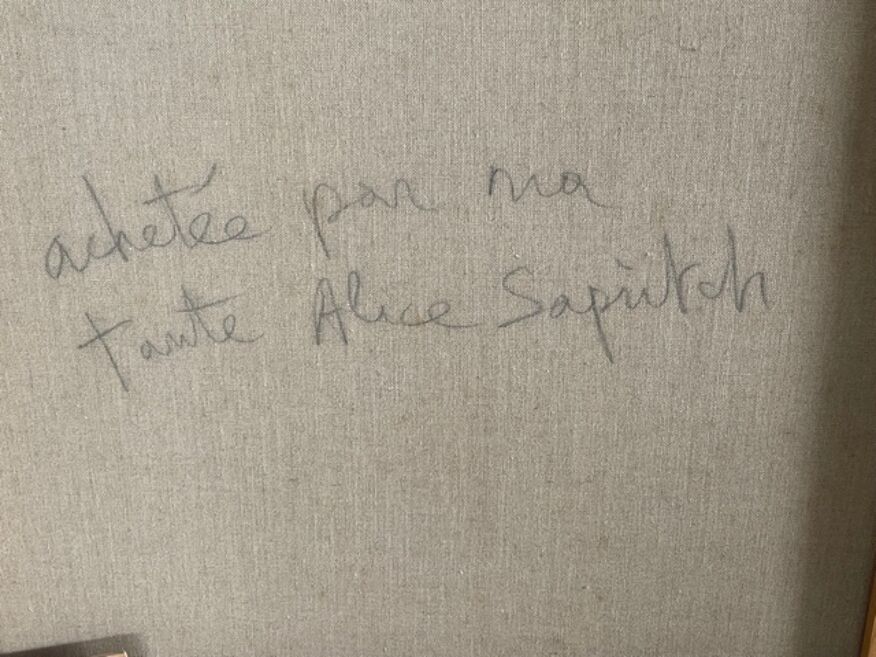 achetée par ma
tante Alice